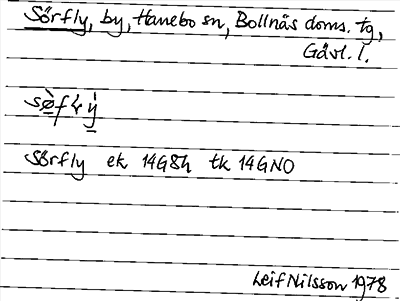 Sörfly, by, Hanebo sn, Bollnäs doms. tg,
Gävl. l.
Sörfly ek 14G8h tk 14GNO
Leif Nilsson 1978